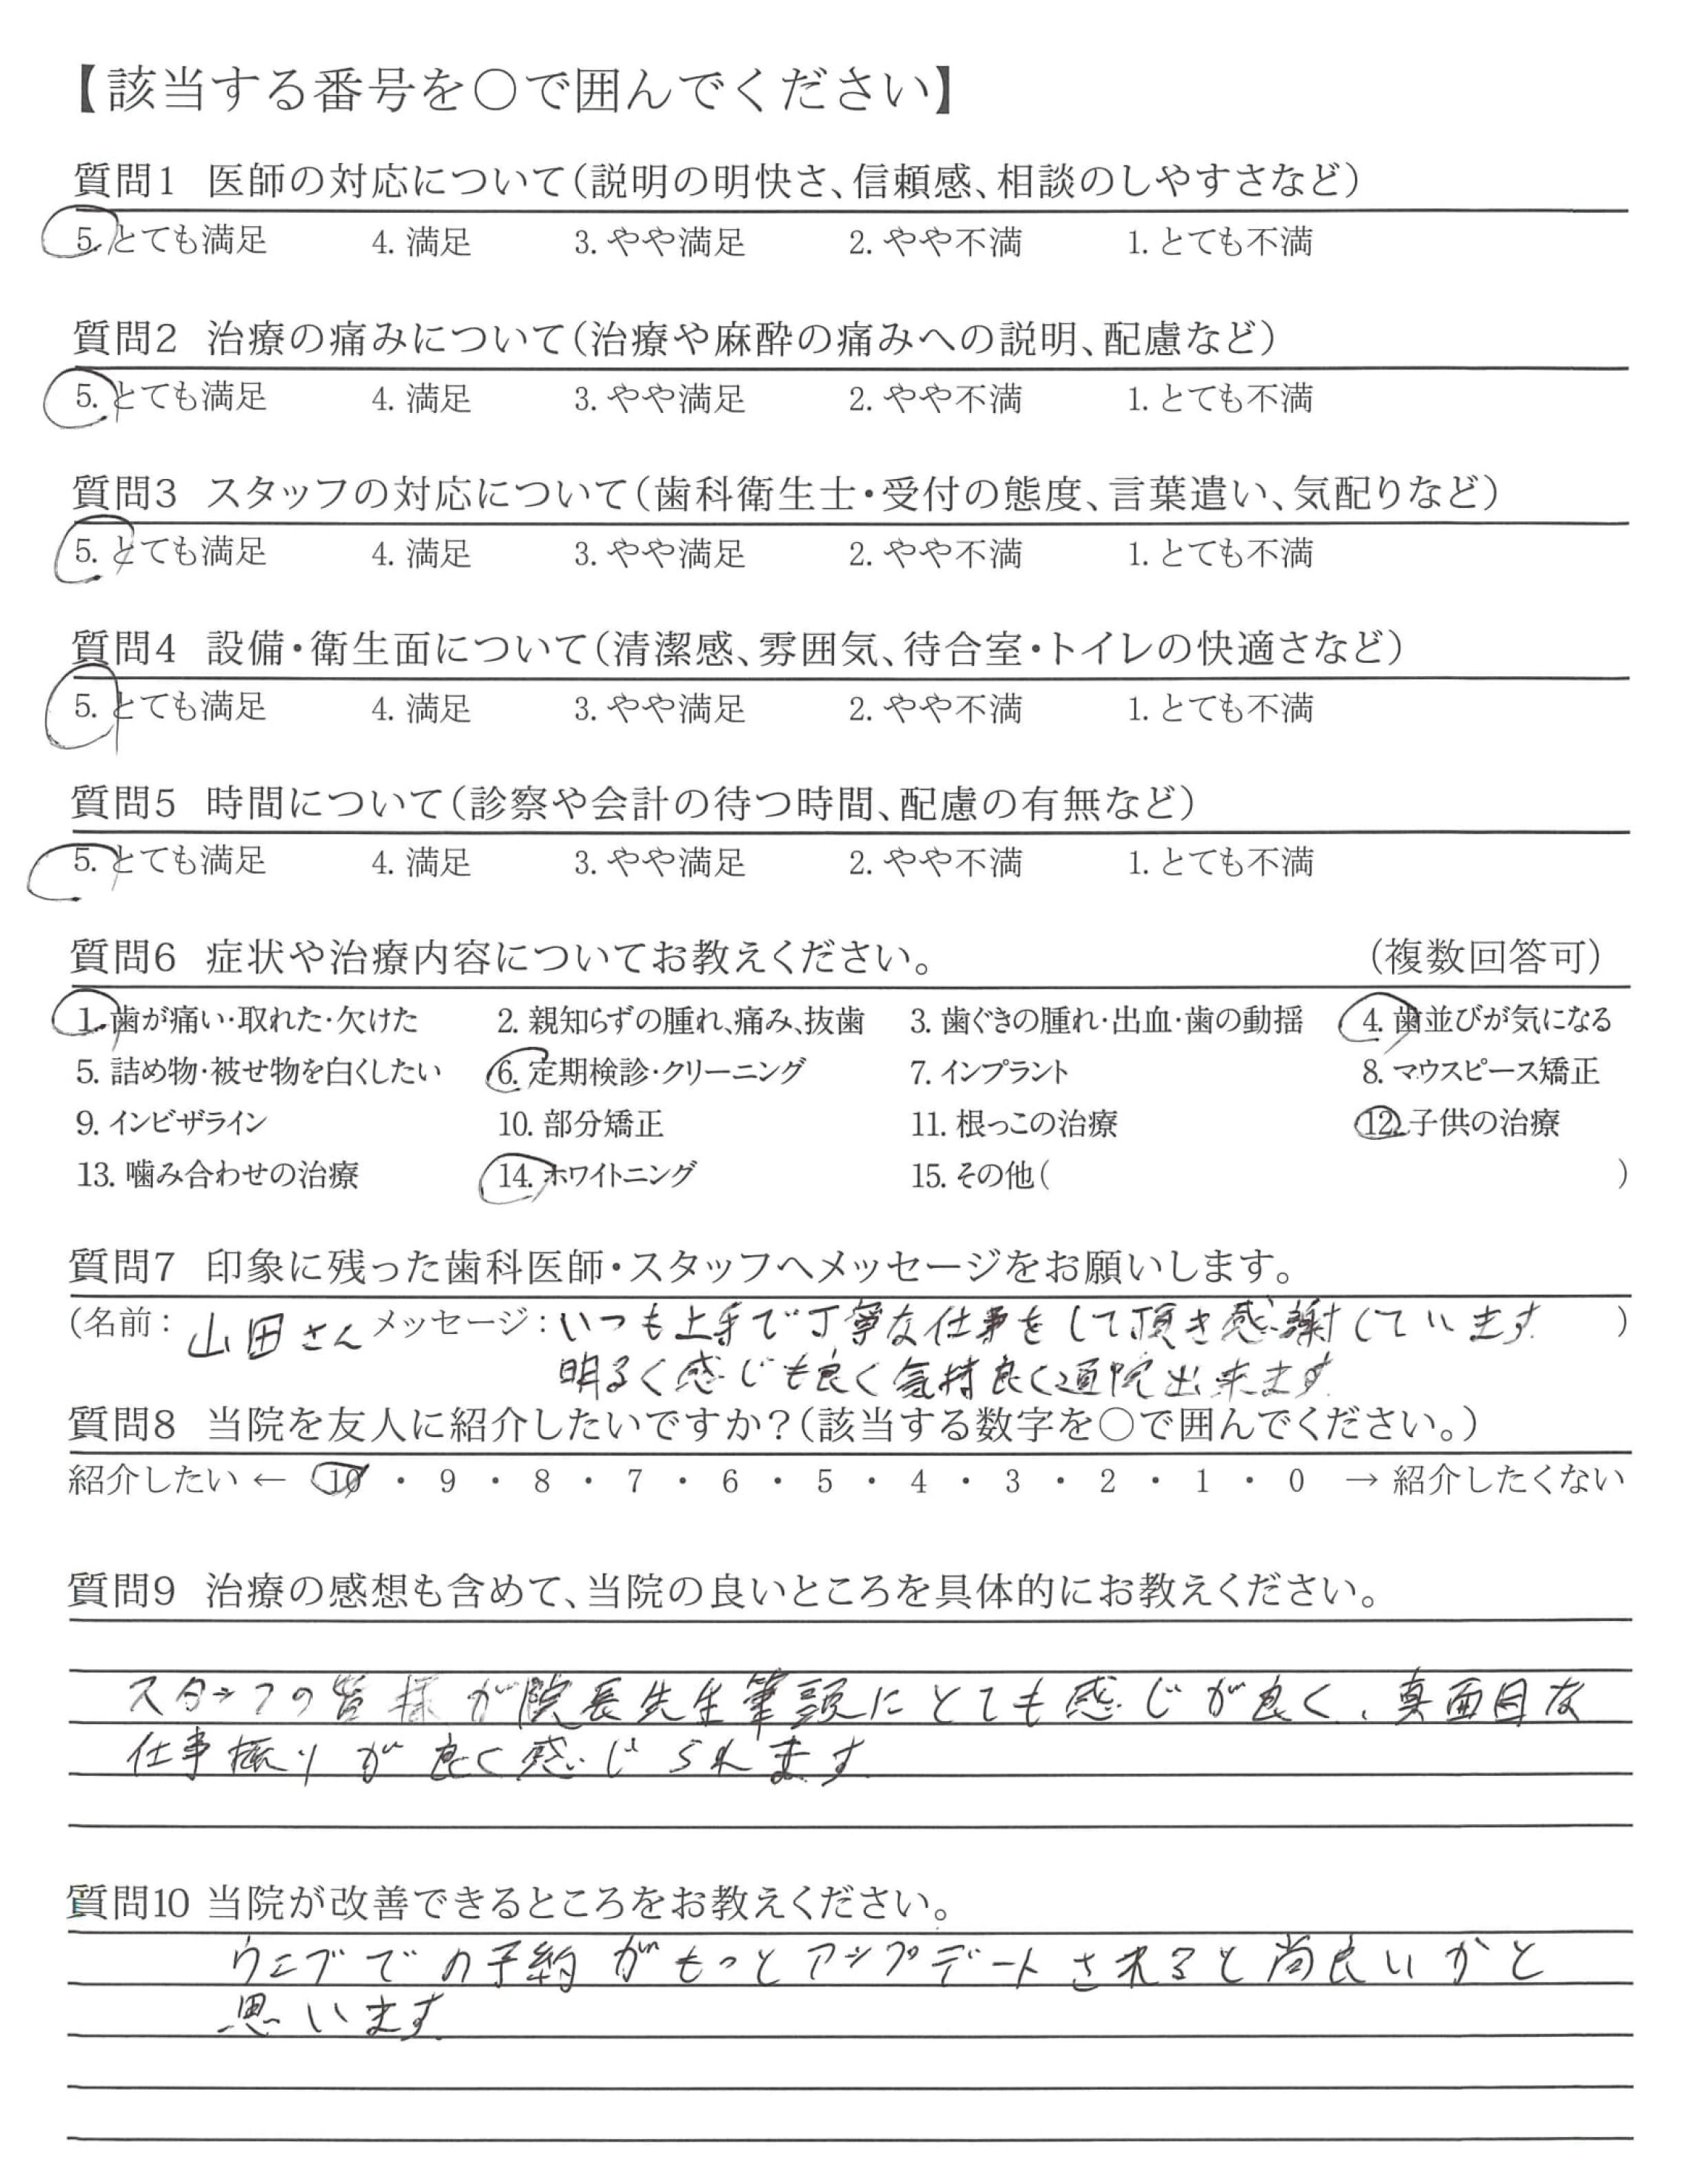 【該当する番号を○で囲んでください】
質問1 医師の対応について(説明の明快さ、信頼感、相談のしやすさなど)
5. とても満足 4. 満足 3. やや満足 2. やや不満 1. とても不満
質問2 治療の痛みについて(治療や麻酔の痛みへの説明、配慮など)
5. とても満足 4. 満足 3. やや満足 2. やや不満 1. とても不満
質問3 スタッフの対応について(歯科衛生士・受付の態度、言葉遣い、気配りなど)
5. とても満足 4. 満足 3. やや満足 2. やや不満 1. とても不満
質問4 設備・衛生面について(清潔感、雰囲気、待合室・トイレの快適さなど)
5. とても満足 4. 満足 3. やや満足 2. やや不満 1. とても不満
質問5 時間について(診察や会計の待つ時間、配慮の有無など)
5. とても満足 4. 満足 3. やや満足 2. やや不満 1. とても不満
質問6 症状や治療内容についてお教えください。 (複数回答可)
1. 歯が痛い・取れた・欠けた 2. 親知らずの腫れ、痛み、抜歯 3. 歯ぐきの腫れ・出血・歯の動揺 4. 歯並びが気になる
5. 詰め物・被せ物を白くしたい 6. 定期検診・クリーニング 7. インプラント 8. マウスピース矯正
9. インビザライン 10. 部分矯正 11. 根っこの治療 12. 子供の治療
13. 噛み合わせの治療 14. ホワイトニング 15. その他( )
質問7 印象に残った歯科医師・スタッフへメッセージをお願いします。
(名前: 山田さん メッセージ: いつも上手で丁寧な仕事をして頂き感謝しています )
明るく感じも良く気持良く通院出来ます
質問8 当院を友人に紹介したいですか?(該当する数字を○で囲んでください。)
紹介したい ← 10 ・ 9 ・ 8 ・ 7 ・ 6 ・ 5 ・ 4 ・ 3 ・ 2 ・ 1 ・ 0 → 紹介したくない
質問9 治療の感想も含めて、当院の良いところを具体的にお教えください。
スタッフの皆様が院長先生筆頭にとても感じが良く、真面目な
仕事振りが良く感じられます
質問10 当院が改善できるところをお教えください。
ウェブでの予約がもっとアップデートされると尚良いかと
思います